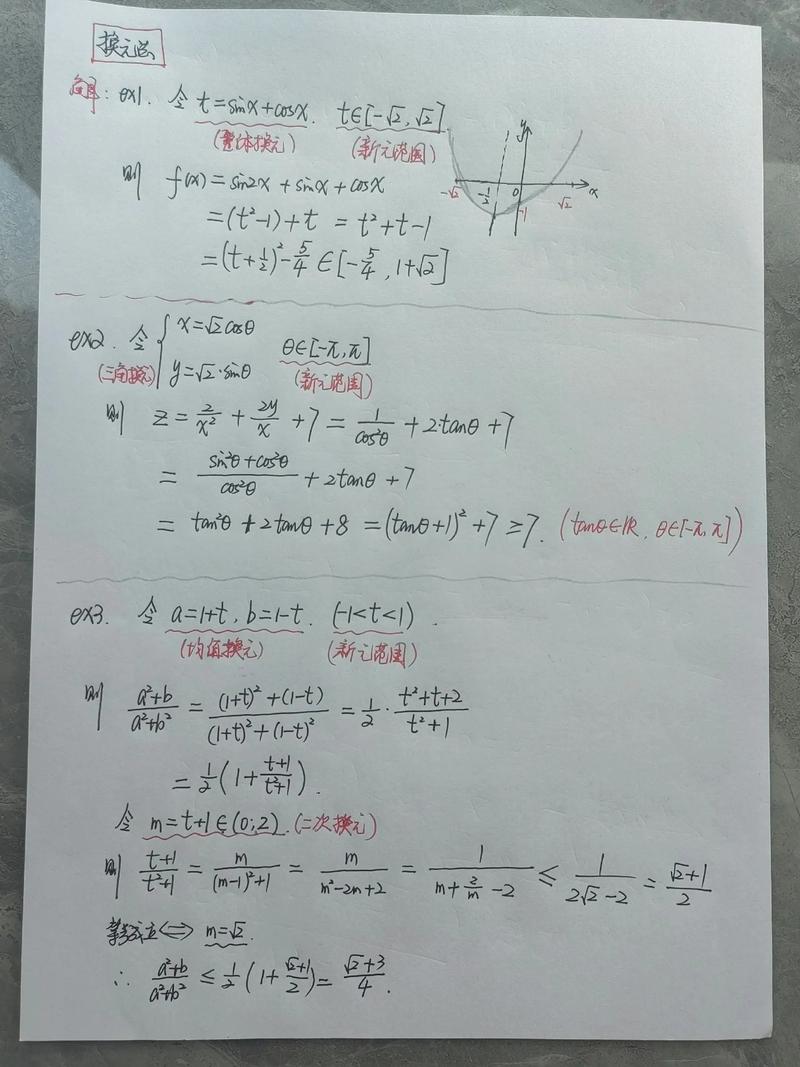 换元法
ex1. 令 t=sinx+cosx. t∈[-√2,√2]
(整体换元) (新元范围)
则 f(x)=sin2x+sinx+cosx
=(t²-1)+t = t²+t-1
=(t+1/2)²-5/4 ∈[-5/4, 1+√2]
y
-√2 -1/2 0 √2 x
-1
ex2. 令 { x=√2cosθ
y=√2·sinθ θ∈[-π,π]
(三角换元) (新元范围)
则 z=2/x²+2y/x+7=1/cos²θ+2·tanθ+7
=(sin²θ+cos²θ)/cos²θ+2tanθ+7
=tan²θ+2tanθ+8=(tanθ+1)²+7≥7. (tanθ∈R, θ∈[-π,π])
ex3. 令 a=1+t, b=1-t. (-1<t<1).
(均值换元) (新元范围)
则 (a²+b)/(a²+b²)=((1+t)²+(1-t))/((1+t)²+(1-t)²)=1/2·(t²+t+2)/(t²+1)
=1/2(1+(t+1)/(t²+1)).
令 m=t+1∈(0,2).(二次换元)
则 (t+1)/(t²+1)=m/((m-1)²+1)=m/(m²-2m+2)=1/(m+2/m-2)≤1/(2√2-2)=(√2+1)/2
等号成立⟺m=√2.
∴ (a²+b)/(a²+b²)≤1/2(1+(√2+1)/2)=(√2+3)/4.